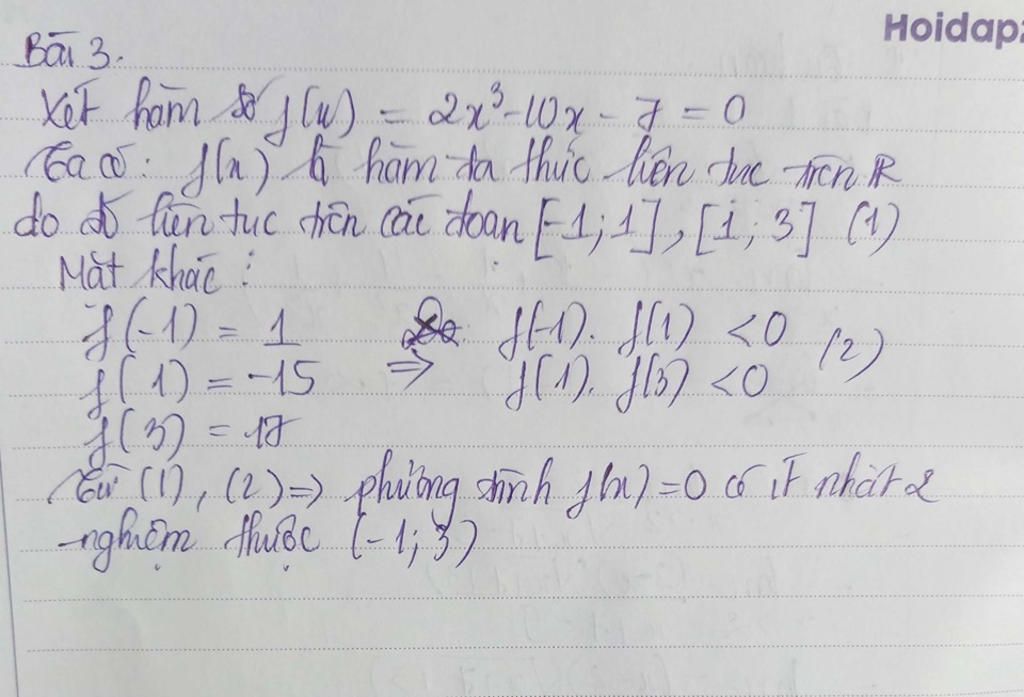 Hoidap2
Bài 3.
Xét hàm số f(x) = 2x³-10x - 7 = 0
Ta có: f(x) là hàm đa thức liên tục trên R
do đó liên tục trên các đoạn [-1; 1], [1; 3] (1)
Mặt khác:
f(-1) = 1
f(1) = -15 ⇒ f(-1). f(1) < 0 (2)
f(3) = 17 f(1). f(3) < 0
Từ (1), (2) => phương trình f(x) = 0 có ít nhất 2
nghiệm thuộc (-1; 3)